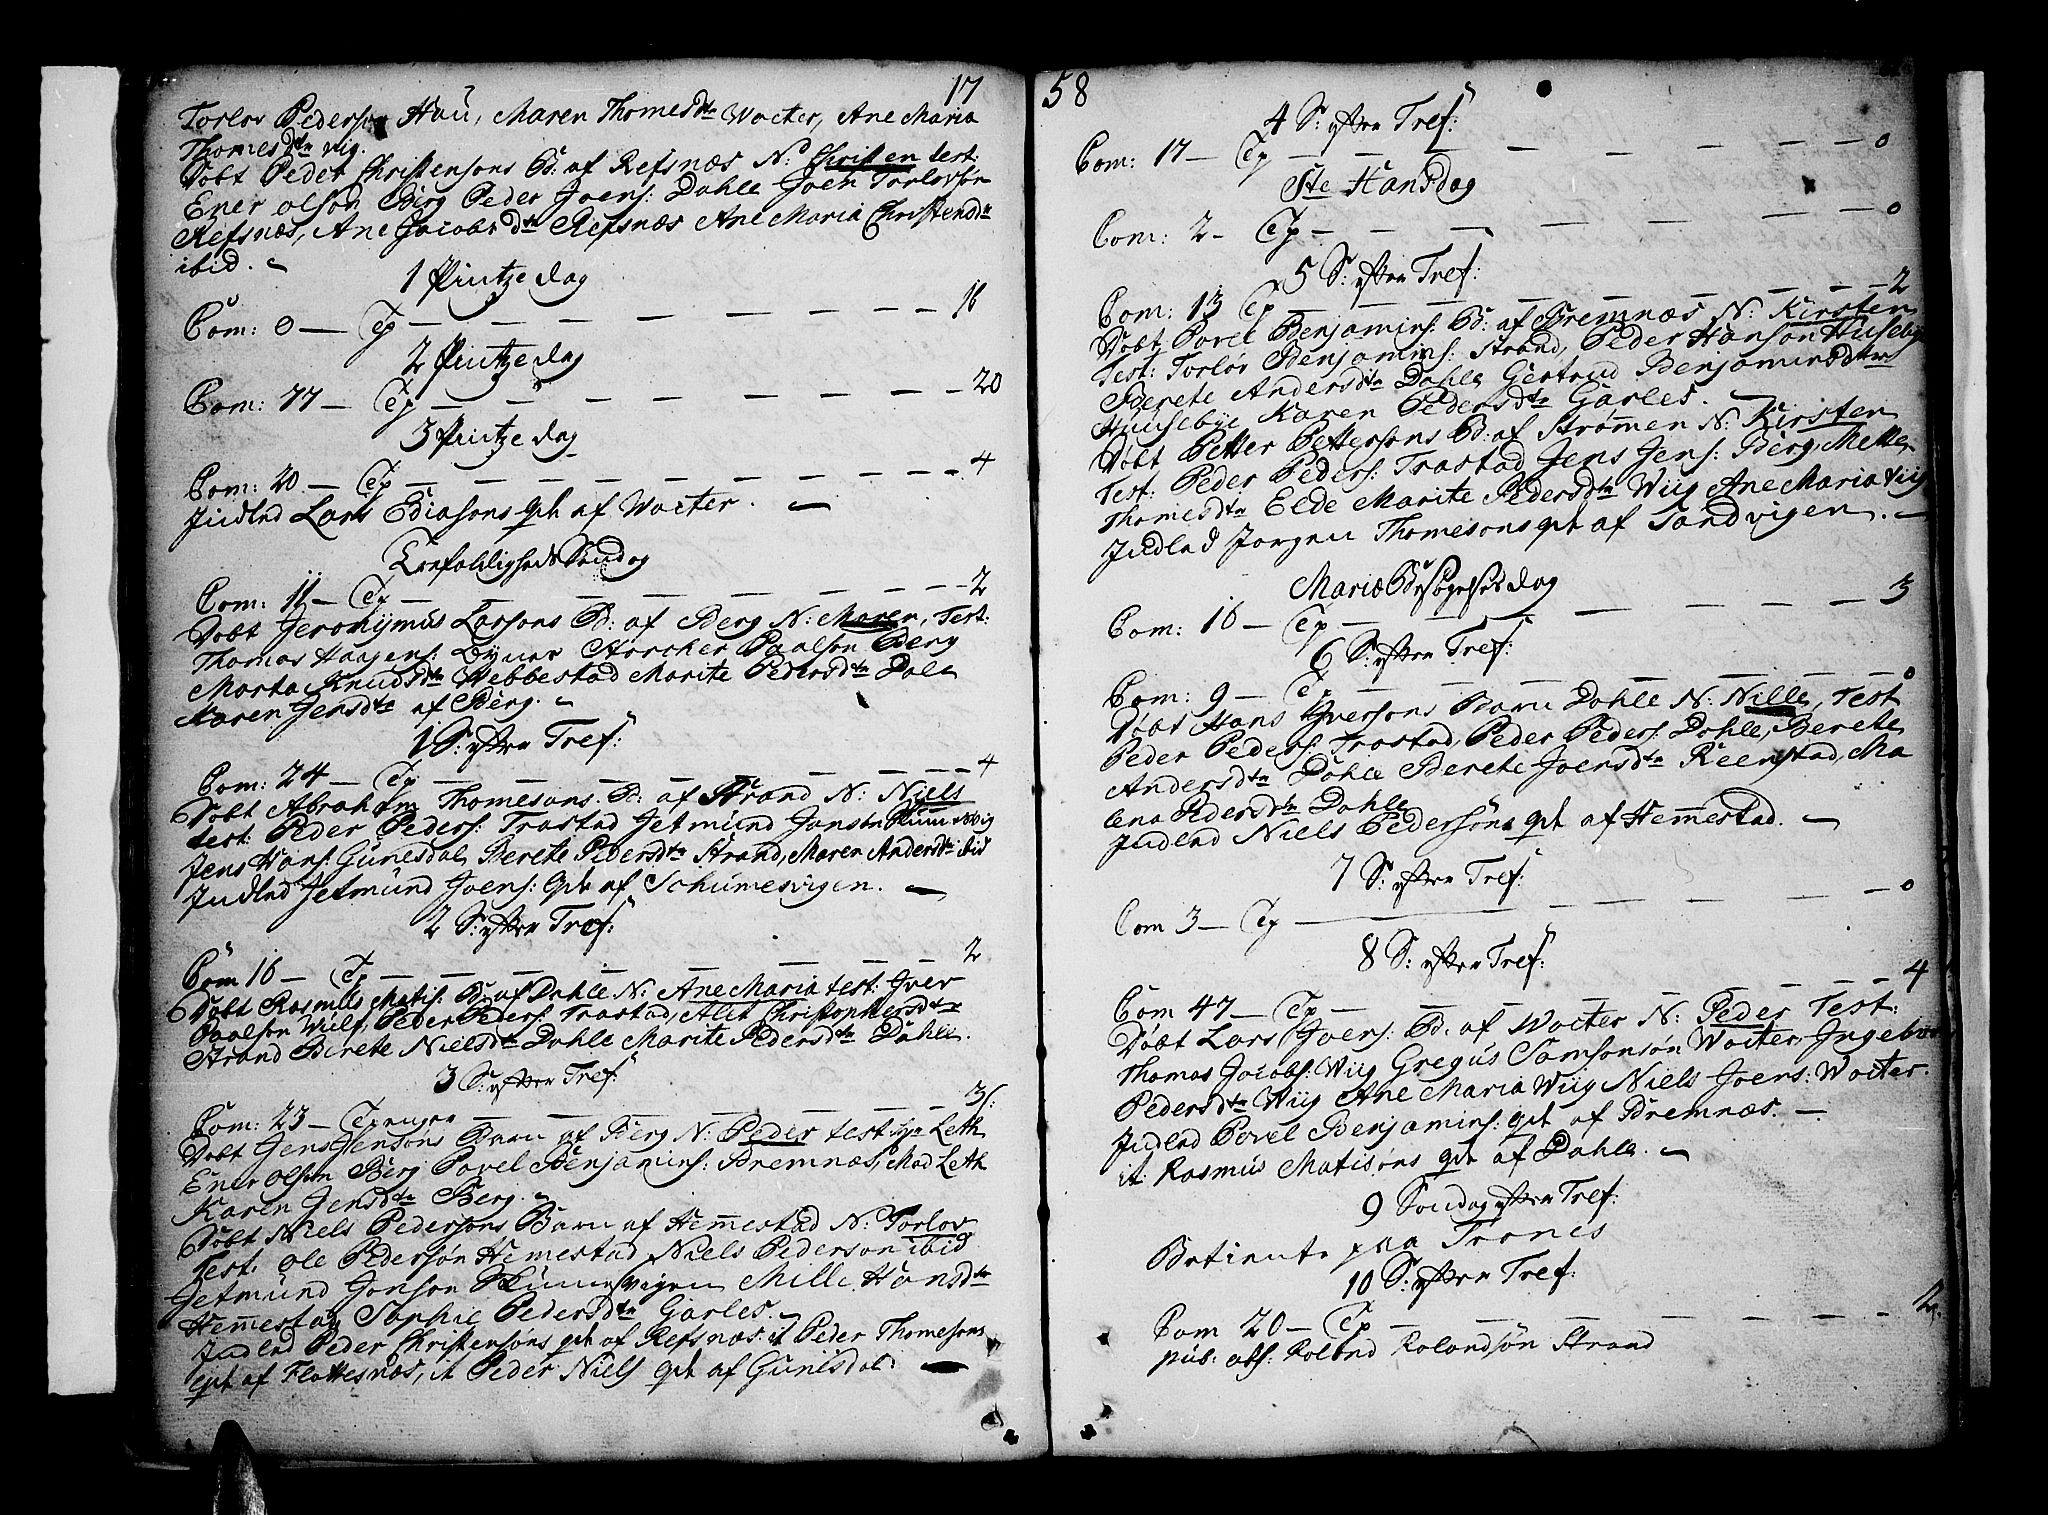 17
Torlov Pederson Hau, Maren Thomesdtr Wolter, Ane Maria
Thomesdtr wig.
Døbt Peder Christensons B: af Refsnæs N: Christen test:
Ener olson Berg Peder Joens: Dahle Joen Torlovsøn
Refsnæs, Ane Jacobsdtr Refsnæs Ane Maria Christensdtr
ibid.
1 Pintzedag
Com: 0 — Cp — 16
2 Pintzedag
Com: 77 — Cp — 20
3 Pintzedag
Com: 20 — Cp — 4
Indled Lars Ediasons qvt af Wolter.
Trefoldigheds Sondag
Com: 11 — Cp — 2
Døbt Jeronymus Larsons B: af Berg N: Maren, Test:
Thomas Hagens: Storcher Paalson Berg
Marta Knudsdtr Hebbestad Marite Pedersdtr Dale
Karen Jensdtr af Berg.
1 S: efter Tref:
Com: 24 — Cp — 4
Døbt Abraham Thomesons B: af Strand N: Niels
test: Peder Peders: Trastad Jetmund Jonsøn
Jens Hans: Gunesdal Berete Pedersdtr Strand, Maren Andersdtr ibid
Indled Jetmund Joens: Qvt af Schumesvigen.
2 S: efter Tref:
Com 16 — Cp — 2
Døbt Rasmus Matis: B: af Dahle N: Ane Maria test: Iver
Paalson Wiig, Peder Peders: Trastad, Alet Christophersdtr
Strand Berete Nielsdtr Dahle Marite Pedersdtr Dahle.
3 S: efter Tref:
Com: 23 — 3
Døbt Jens Jensons Barn af Berg N: Peder test:
Ener Olson Berg Povel Benjamins: Bremnæs,
Karen Jensdtr Berg.
Døbt Niels Pedersons Barn af Hemestad N: Torlov
Test: Ole Pedersøn Hemestad Niels Pederson ibid
Jetmund Jonson Skumesvigen Mille Hansdtr
Hemestad Sophie Pedersdtr Garles.
Indled Peder Christensøns qvt af Refsnæs. it Peder Thomesons
qvt af Flottesnæs, it Peder Niels qvt af Gunesdal
58
4 S: efter Tref:
Com: 17 — Cp — 0
Ste Hansdag
Com: 2 — Cp — 0
5 S: efter Tref:
Com: 13 Cp — 2
Døbt Povel Benjamins: B: af Bremnæs N: Kirsten
Test: Torlov Benjamins: Strand, Peder Hanson Husebye
Berete Andersdtr Dahle Gertrud Benjaminsdtr
Husebye Karen Pedersdtr Garles.
Døbt Petter Pettersons B: af Strømen N: Kirsten
Test: Peder Peders: Trastad Jens Jens: Berg, Mette
Thomesdtr Elde Marite Pedersdtr Wiig Ane Maria Viig
Indled Jørgen Thomesons qvt af Sandvigen.
Mariæ Besøgelsesdag
Com: 16 — Cp — 3
6 S: efter Tref:
Com: 9 — Cp — 0
Døbt Hans Iversons Barn Dahle N: Nille, Test
Peder Peders: Trastad, Peder Peders: Dahle, Berete
Andersdtr Dahle Berete Joensdtr Reenstad, Ma
lena Pedersdtr Dahle
Indled Niels Pedersøns qvt af Hemestad.
7 S: efter Tref:
Com 3 — Cp — 0
8 S: efter Tref:
Com 47 — Cp — 4
Døbt Lars Joens: B: af Wolter N: Peder Test:
Thomas Jacobs: Wiig Gregus Samsonsøn Wolter, Ingebor
Pedersdtr Wiig Ane Maria Wiig Niels Joens: Wolter.
Indled Povel Benjamins: qvt af Bremnæs.
it Rasmus Matisøns qvt af Dahle.
9 Sondag efter Tref:
Betiente paa Trones
10 S: efter Tref:
Com 20 — Cp — 2
pub: abs: Roland Rolandsøn Strand